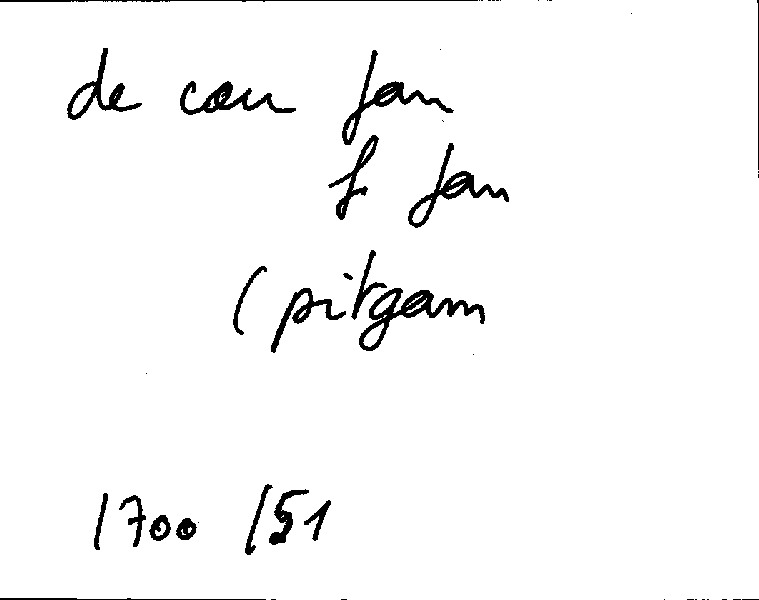 de cou Jan
f. Jan
(pitgam
1700 /51